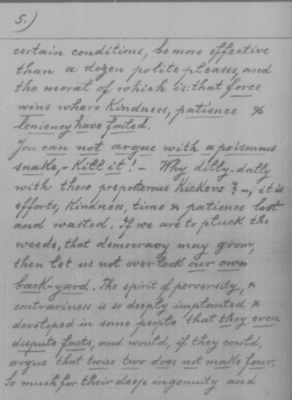 5.)
certain conditions, be more effective
than a dozen polite pleases, and
the moral of which is: that force
wins where kindness, patience &
leniency have failed.
You can not argue with a poisonous
snake, - Kill it! - Why dilly-dally
with these preposterous Kickers? -, it is
efforts, Kindness, time & patience lost
and wasted. If we are to pluck the
weeds, that democracy may grow,
then let us not overlook our own
back-yard. The spirit of perversity, &
contrariness is so deeply implanted &
developed in some people that they even
dispute facts, and would, if they could,
argue that twice two does not make four.
So much for their deep ingenuity and